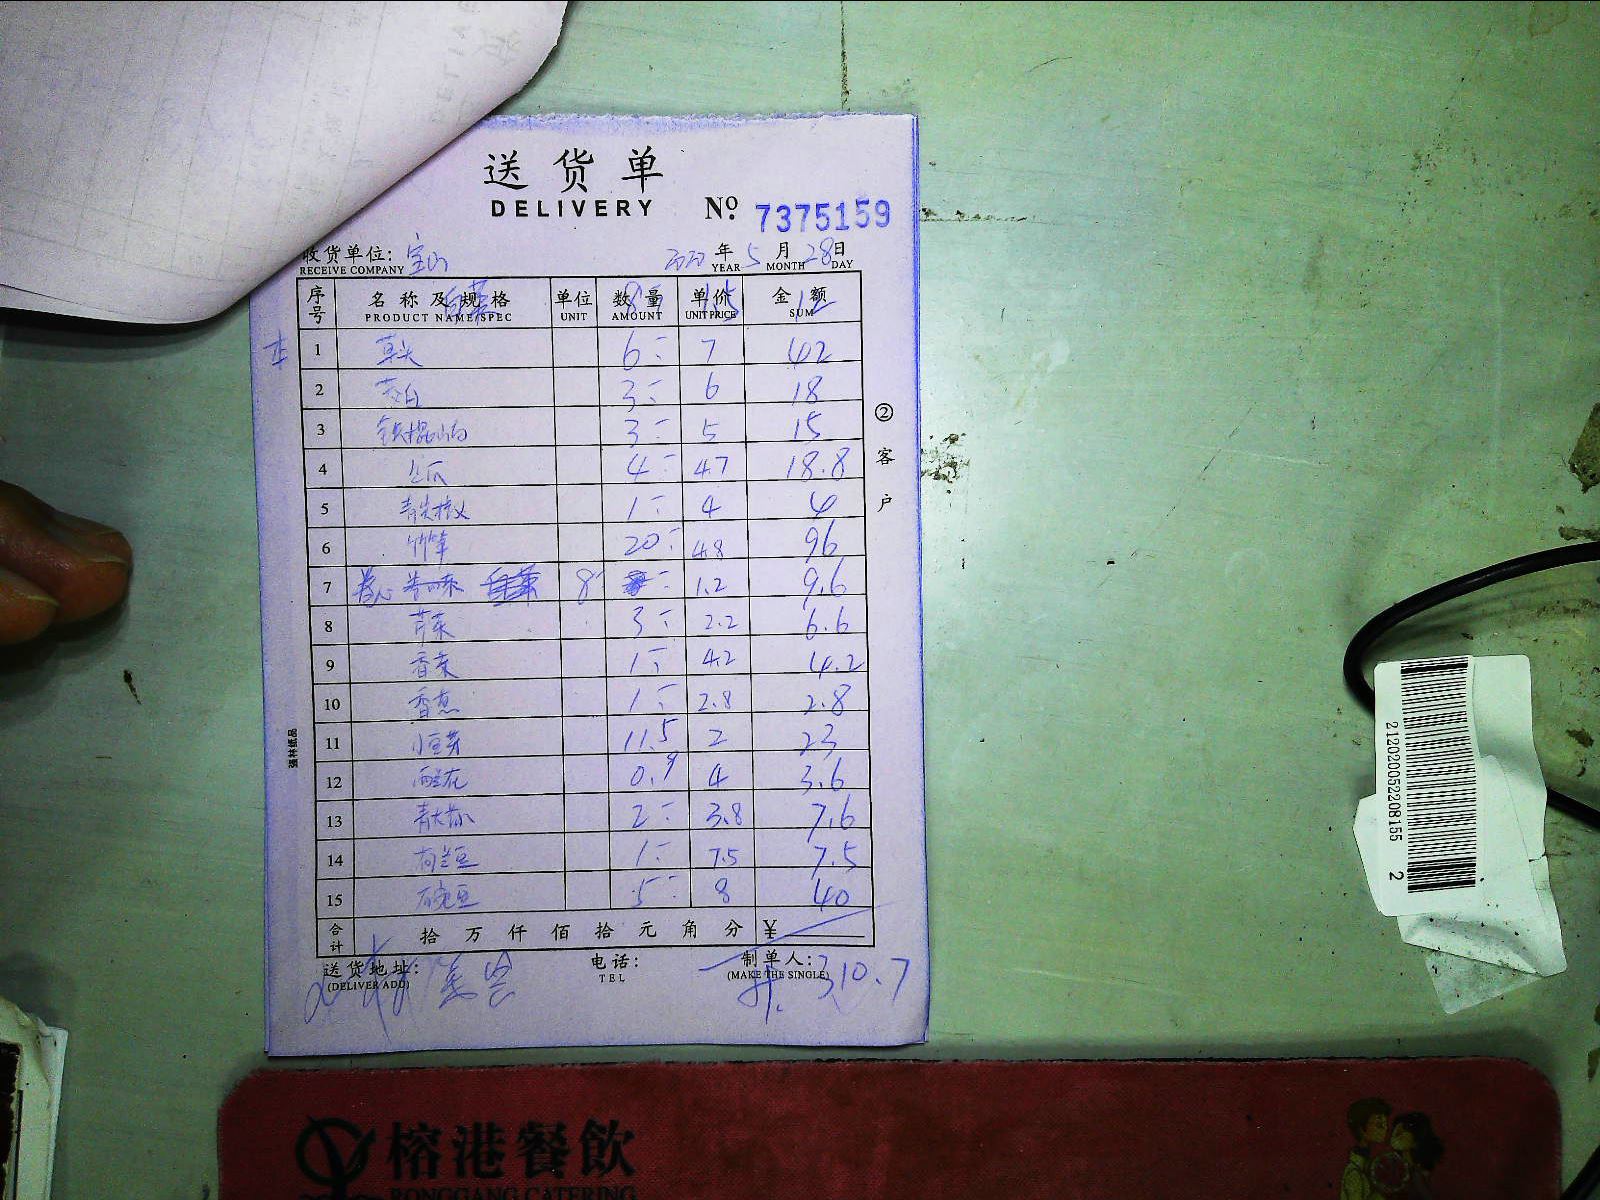 送货单
DELIVERY № 7375159
收货单位: 宝山 2020年5月28日
RECEIVE COMPANY YEAR MONTH DAY
序号 名称及规格 单位 数量 单价 金额
PRODUCT NAME/SPEC UNIT AMOUNT UNIT PRICE SUM
白菜 8 1.5 12
1 草头 6 7 42
2 茭白 3 6 18
3 铁棍山药 3 5 15
4 4 4.7 18.8
5 青尖椒 1 4 4
6 竹笋 20 4.8 96
7 卷心 8 1.2 9.6
8 芹菜 3 2.2 6.6
9 香菜 1 4.2 4.2
10 香葱 1 2.8 2.8
11 小豆芽 11.5 2 23
12 西兰花 0.9 4 3.6
13 青大椒 2 3.8 7.6
14 荷兰豆 1 7.5 7.5
15 豌豆 5 8 40
合计 拾 万 仟 佰 拾 元 角 分 ¥
送货地址: 电话: 制单人:
(DELIVER ADD) TEL (MAKE THE SINGLE)
共. 310.7
② 客户
强林纸品
2120200522208155 2
榕港餐飲
RONGGANG CATERING